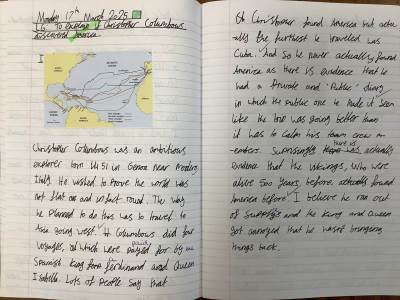 Monday 17th March 2025
LG: To explain if Christopher Columbous
discovered America
I
Christopher Columbous was an ambitious
explorer born 1451 in Genoa near modern
Italy. He wished to prove the world was
not flat and in fact round. The way
he planned to do this was to travel to
Asia going west. Columbous did four
voyages, all which were payed for by the
Spanish king Ferdinand and Queen
Isabella. Lots of people say that
Christopher found America but actu
ally the furthest he traveled was
Cuba. And so he never actually found
America as there is evidence that he
had a Private and "Public" diary
in which the public one he made it seem
like the trip was going better than
it was to calm his team crew m
embers. Surprisingly there is was actually
evidence that the Vikings, who were
alive 500 years before actually found
America before I believe he ran out
of supplys and the king and Queen
got annoyed that he wasn't bringing
things back.